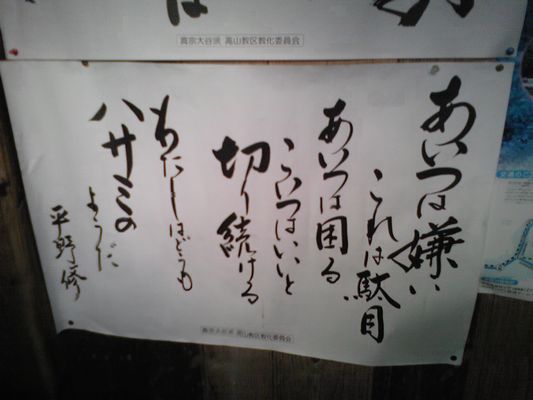 真宗大谷派 高山教区教化委員会
あいつは嫌い
これは駄目
あいつは困る
こいつはいいと
切り続ける
わたしはどうも
ハサミの
ようだ
平野修
真宗大谷派 高山教区教化委員会